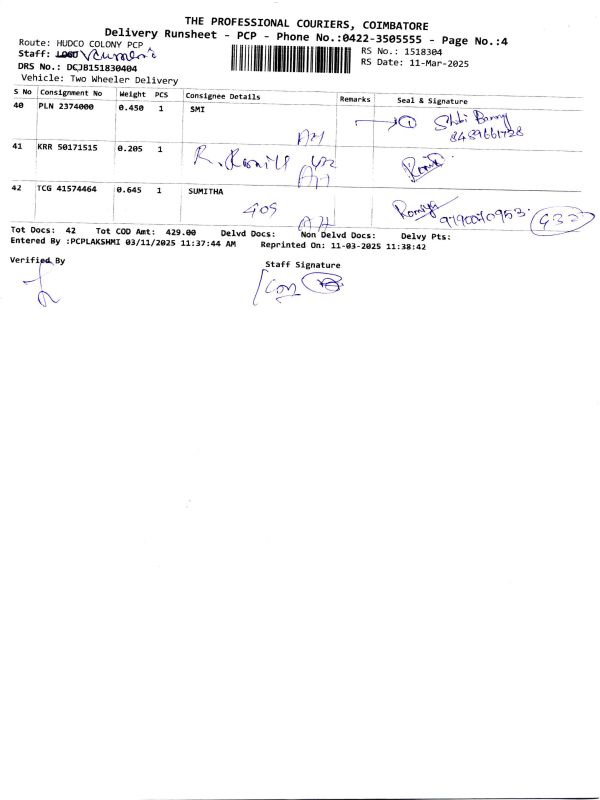 THE PROFESSIONAL COURIERS, COIMBATORE
Delivery Runsheet - PCP - Phone No.:0422-3505555 - Page No.:4
Route: HUDCO COLONY PCP
Staff:
DRS No.: DCJB151830404
Vehicle: Two Wheeler Delivery
RS No.: 1518304
RS Date: 11-Mar-2025
S No Consignment No Weight PCS Consignee Details Remarks Seal & Signature
40 PLN 2374000 0.450 1 SMI
AH
1
8489661728
41 KRR 50171515 0.205 1
AH
42 TCG 41574464 0.645 1 SUMITHA
AH
Romiya
Tot Docs: 42 Tot COD Amt: 429.00 Delvd Docs: Non Delvd Docs: Delvy Pts:
Entered By :PCPLAKSHMI 03/11/2025 11:37:44 AM Reprinted On: 11-03-2025 11:38:42
Verified By
Staff Signature